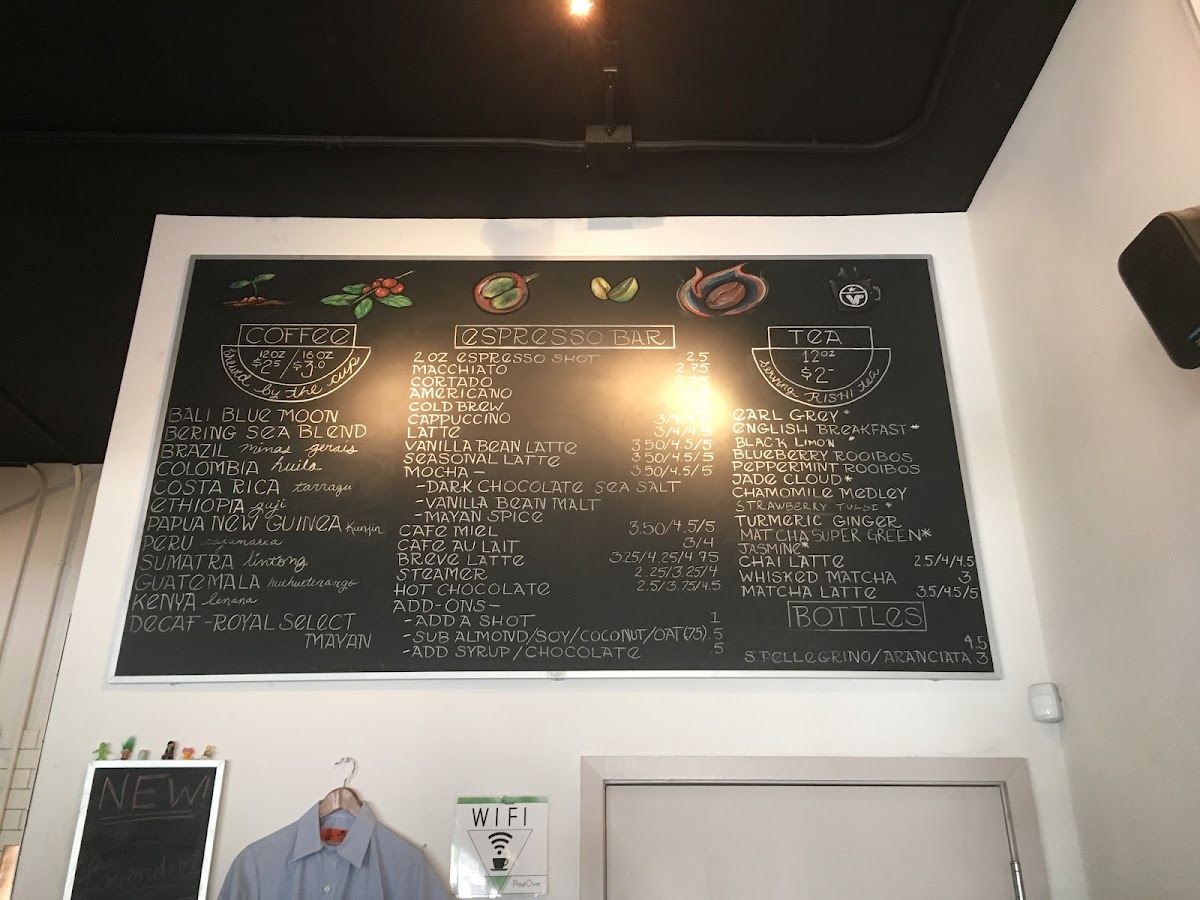 COFFEE
12 OZ / 16 OZ
$2.5 / $3.0
Brewed by the cup
BALI BLUE MOON
BERING SEA BLEND
BRAZIL minas gerais
COLOMBIA huila
COSTA RICA tarrazu
ETHIOPIA guji
PAPUA NEW GUINEA Kunjin
PERU cajamarca
SUMATRA lintong
GUATEMALA huehuetenango
KENYA lenana
DECAF - ROYAL SELECT
MAYAN
ESPRESSO BAR
2 OZ ESPRESSO SHOT 2.5
MACCHIATO 2.75
CORTADO
AMERICANO
COLD BREW
CAPPUCCINO
LATTE
VANILLA BEAN LATTE 3.50/4.5/5
SEASONAL LATTE 3.50/4.5/5
MOCHA — 3.50/4.5/5
-DARK CHOCOLATE SEA SALT
-VANILLA BEAN MALT
-MAYAN SPICE
CAFE MIEL 3.50/4.5/5
CAFE AU LAIT 3/4
BREVE LATTE 3.25/4.25/4.75
STEAMER 2.25/3.25/4
HOT CHOCOLATE 2.5/3.75/4.5
ADD-ONS—
-ADD A SHOT 1
-SUB ALMOND/SOY/COCONUT/OAT(.75) .5
-ADD SYRUP/CHOCOLATE .5
TEA
12 OZ
$2-
Serving RISHI tea
EARL GREY*
ENGLISH BREAKFAST*
BLACK LIMON *
BLUEBERRY ROOIBOS
PEPPERMINT ROOIBOS
JADE CLOUD*
CHAMOMILE MEDLEY
STRAWBERRY TULSI *
TURMERIC GINGER
MATCHA SUPER GREEN*
JASMINE*
CHAI LATTE 2.5/4/4.5
WHISKED MATCHA 3
MATCHA LATTE 3.5/4.5/5
BOTTLES
4.5
S.PELLEGRINO/ARANCIATA 3
NEW!
WIFI
PourOver